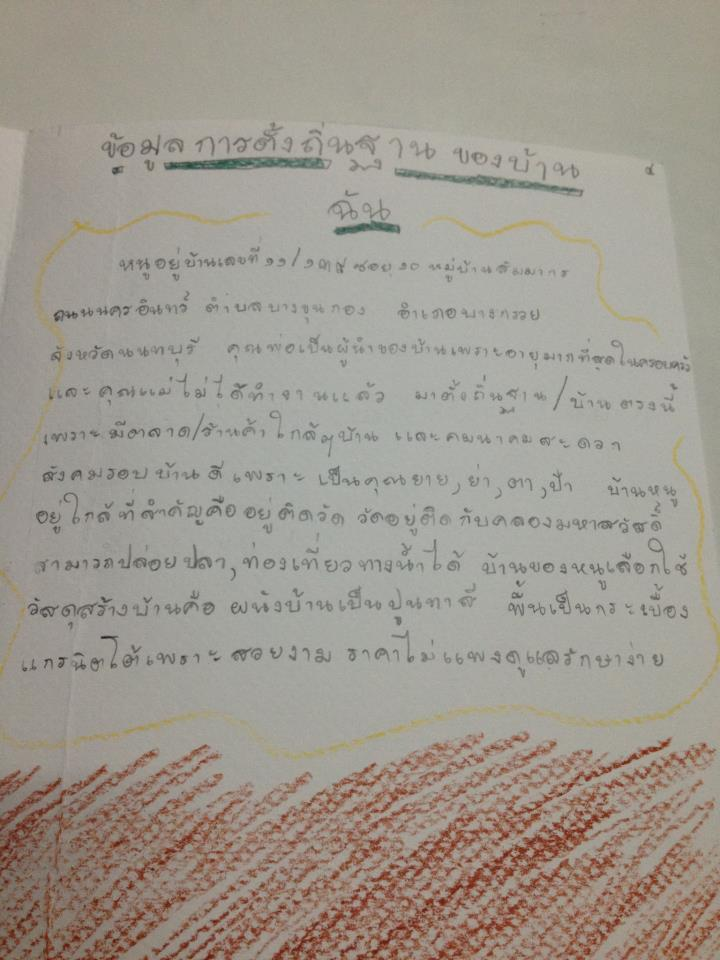 ข้อมูลการตั้งถิ่นฐานของบ้าน ๔
ฉัน
หนูอยู่บ้านเลขที่ ๑๑/๑๓๙ ซอย ๑๐ หมู่บ้านสัมมากร
ถนนนครอินทร์ ตำบลบางขุนกอง อำเภอบางกรวย
จังหวัดนนทบุรี คุณพ่อเป็นผู้นำของบ้านเพราะอายุมากที่สุดในครอบครัว
และคุณแม่ไม่ได้ทำงานแล้ว มาตั้งถิ่นฐาน/บ้านตรงนี้
เพราะมีตลาด/ร้านค้าใกล้ๆบ้าน และคมนาคมสะดวก
สังคมรอบบ้านดีเพราะ เป็นคุณยาย,ย่า,ตา,ป้า บ้านหนู
อยู่ใกล้ที่สำคัญคืออยู่ติดวัด วัดอยู่ติดกับคลองมหาสวัสดิ์
สามารถปล่อยปลา,ท่องเที่ยวทางน้ำได้ บ้านของหนูเลือกใช้
วัสดุสร้างบ้านคือ ผนังบ้านเป็นปูนทาสี พื้นเป็นกระเบื้อง
แกรนิตโต้เพราะสวยงาม ราคาไม่แพงดูแลรักษาง่าย